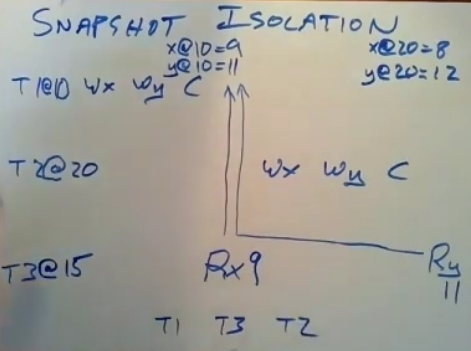 SNAPSHOT ISOLATION
x@10=9 x@20=8
y@10=11 y@20=12
T1@10 Wx Wy C
T2@20 Wx Wy C
T3@15 Rx9 Ry
11
T1 T3 T2